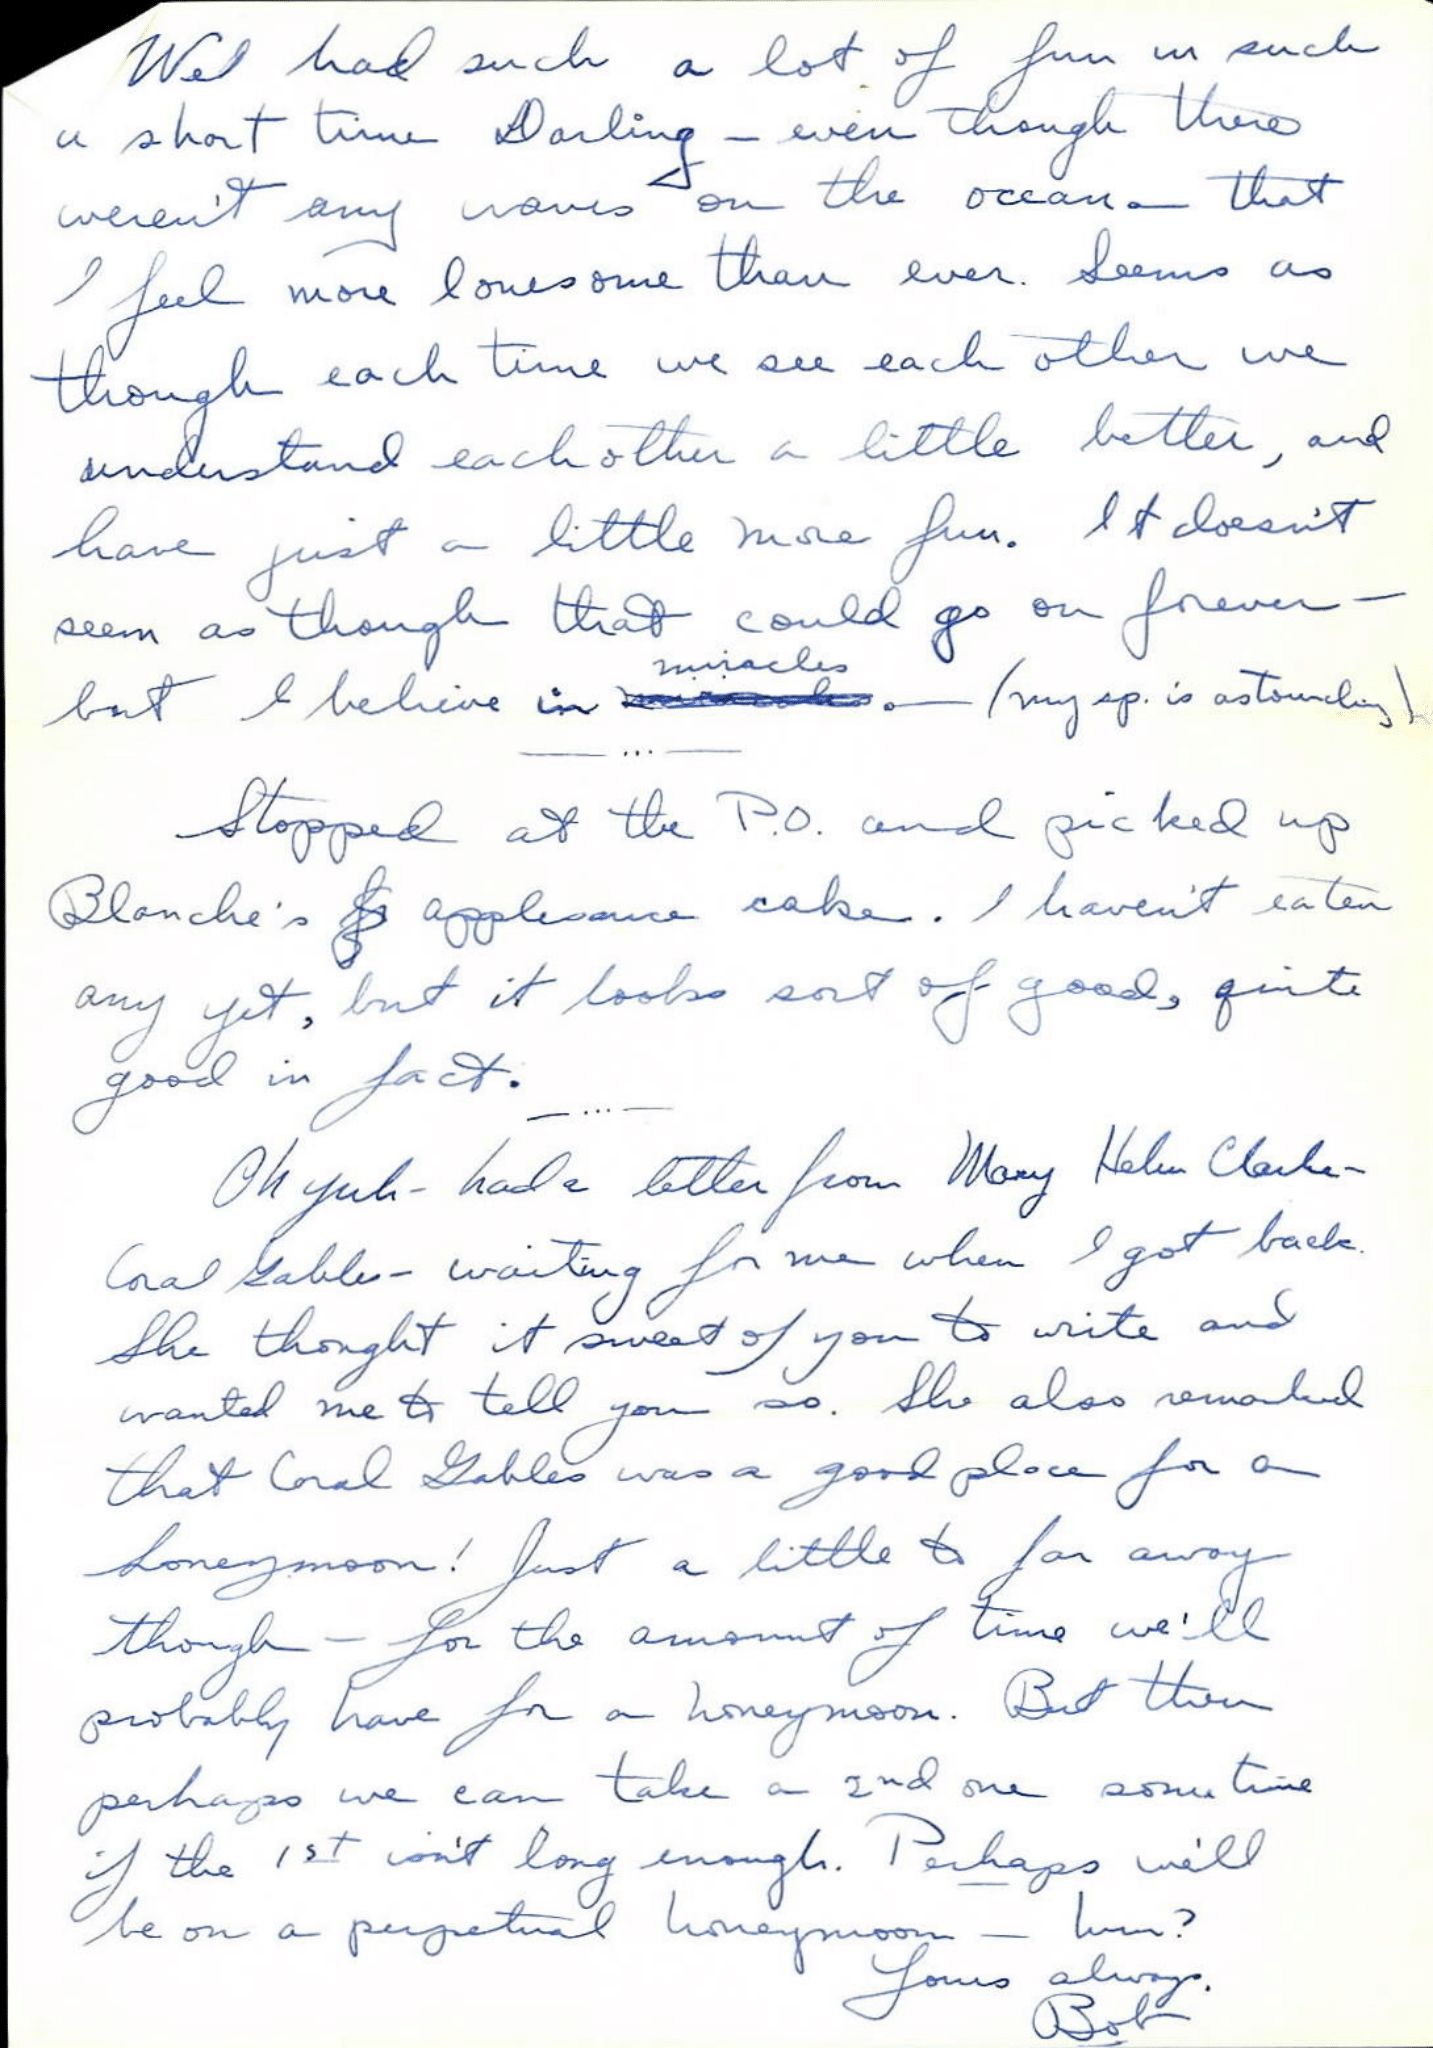 We had such a lot of fun in such
a short time Darling - even though there
weren't any waves on the ocean - that
I feel more lonesome than ever. Seems as
though each time we see each other we
understand each other a little better, and
have just a little more fun. It doesn't
seem as though that could go on forever -
but I believe in miracles. - (my sp. is astounding)
- ... -
Stopped at the P.O. and picked up
Blanche's applesauce cake. I haven't eaten
any yet, but it looks sort of good, quite
good in fact.
- ... -
Oh yuh - had a letter from Mary Helen Clarke -
Coral Gables - waiting for me when I got back.
She thought it sweet of you to write and
wanted me to tell you so. She also remarked
that Coral Gables was a good place for a
honeymoon! Just a little to far away
though - for the amount of time we'll
probably have for a honeymoon. But then
perhaps we can take a 2nd one sometime
if the 1st isn't long enough. Perhaps we'll
be on a perpetual honeymoon - hum?
Yours always.
Bob